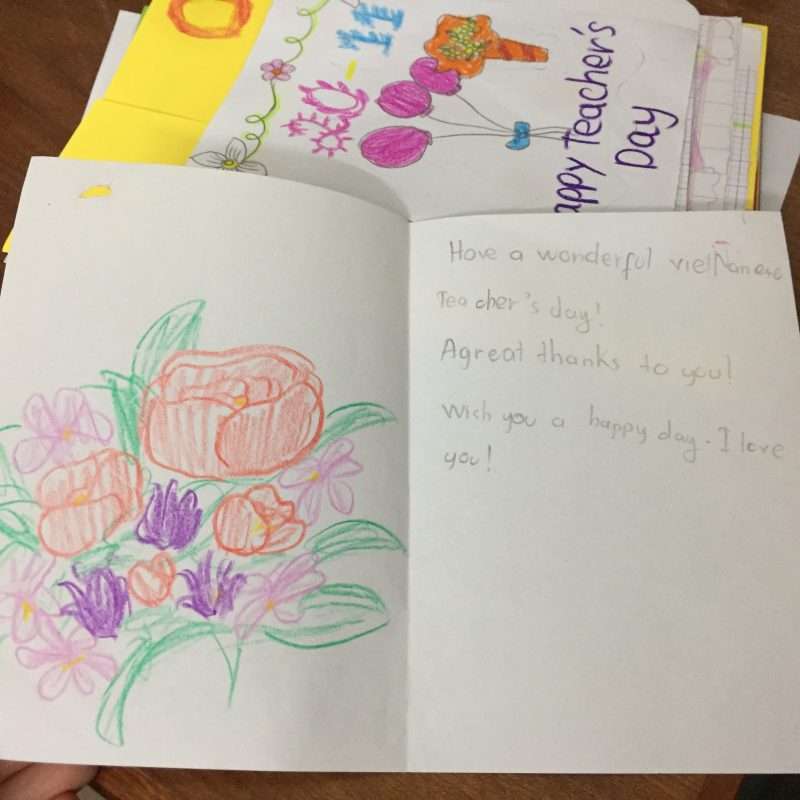 appy Teacher's
Day
Have a wonderful vietNamese
Teacher's day!
Agreat thanks to you!
Wich you a happy day. I love
you!